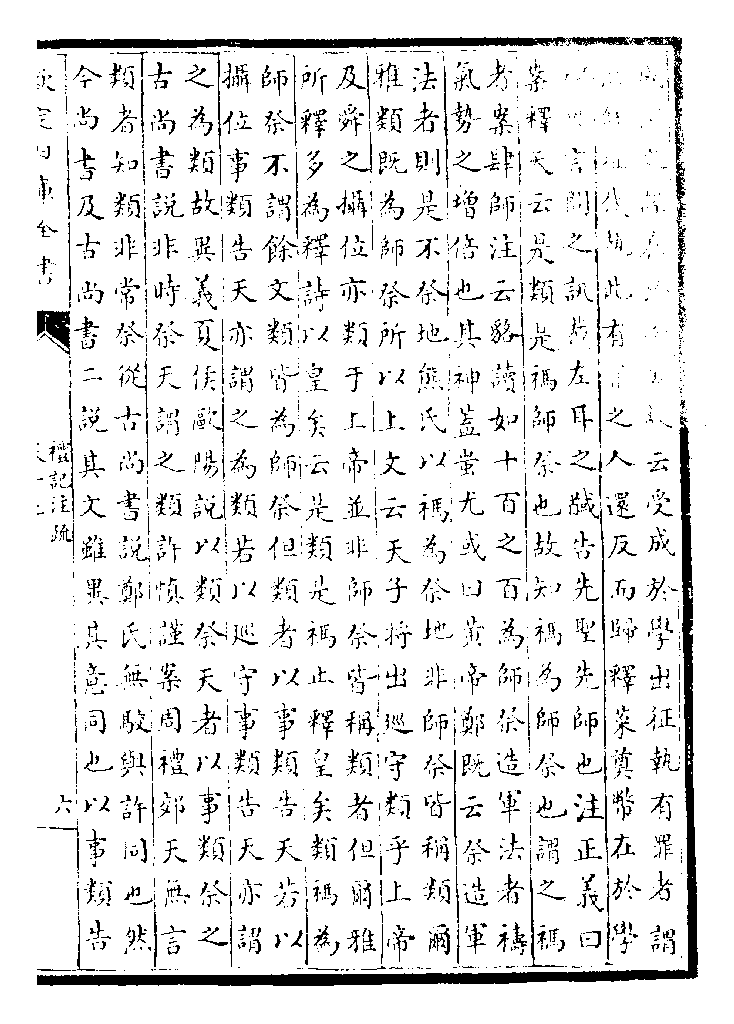 云受成於學出征執有罪者謂
此有之人還反而歸釋菜奠幣在於學
言問之訊馘左耳之馘告先聖先師也注正義曰
案釋天云是類是禡師祭也故知禡為師祭也謂之禡
者案肆師注云貉讀如十百之百為師祭造軍法者禱
氣勢之增倍也其神蓋蚩尤或曰黃帝鄭既云祭造軍
法者則是不祭地熊氏以禡為祭地非師祭皆稱類爾
雅類既為師祭所以上文云天子將出巡守類乎上帝
及舜之攝位亦類于上帝並非師祭皆稱類者但爾雅
所釋多為釋詩以皇矣云是類是禡止釋皇矣類禡為
師祭不謂餘文類皆為師祭但類者以事類告天若以
攝位事類告天亦謂之為類若以巡守事類告天亦謂
之為類故異義夏侯歐陽說以類祭天者以事類祭之
古尚書說非時祭天謂之類許慎謹案周禮郊天無言
類者知類非常祭從古尚書說鄭氏無駮與許同也然
今尚書及古尚書二說其文雖異其意同也以事類告
欽定四庫全書
禮記注疏
六